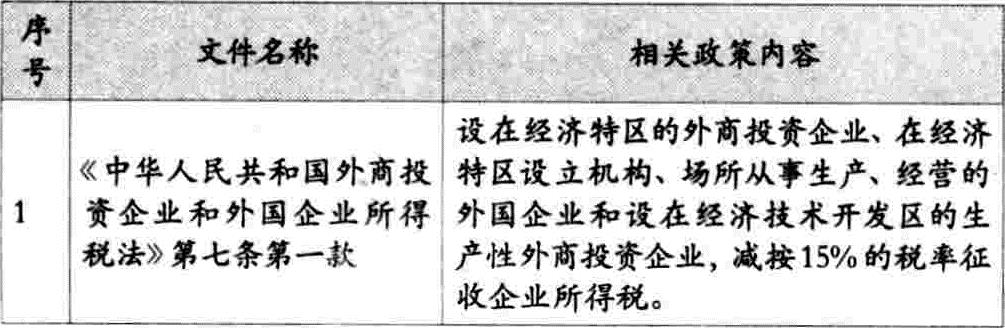 序号
文件名称
相关政策内容
1
《中华人民共和国外商投
资企业和外国企业所得
税法》第七条第一款
设在经济特区的外商投资企业、在经济
特区设立机构、场所从事生产、经营的
外国企业和设在经济技术开发区的生
产性外商投资企业，减按15%的税率征
收企业所得税。